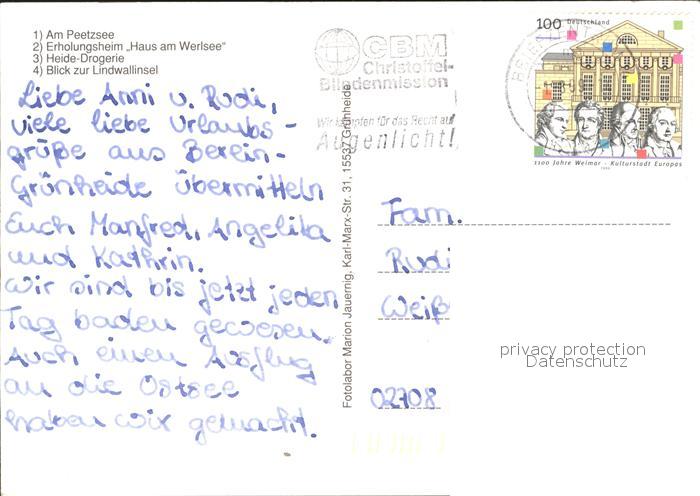 1) Am Peetzsee
2) Erholungsheim „Haus am Werlsee“
3) Heide-Drogerie
4) Blick zur Lindwallinsel
Liebe Anni u. Rudi,
viele liebe Urlaubs-
grüße aus Berlin-
Grünheide übermitteln
Euch Manfred, Angelika
und Kathrin.
Wir sind bis jetzt jeden
Tag baden gewesen.
Auch einen Ausflug
an die Ostsee
haben wir gemacht.
Fotolabor Marion Jauernig, Karl-Marx-Str. 31, 15537 Grünheide
CBM
Christoffel-
Blindenmission
Wir kämpfen für das Recht auf
Augenlicht!
100 Deutschland
1100 Jahre Weimar - Kulturstadt Europas
1999
Fam.
Rudi
Weiß
02708
privacy protection
Datenschutz